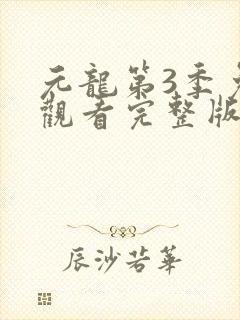 元龍第3季
觀看完整版
辰沙若華